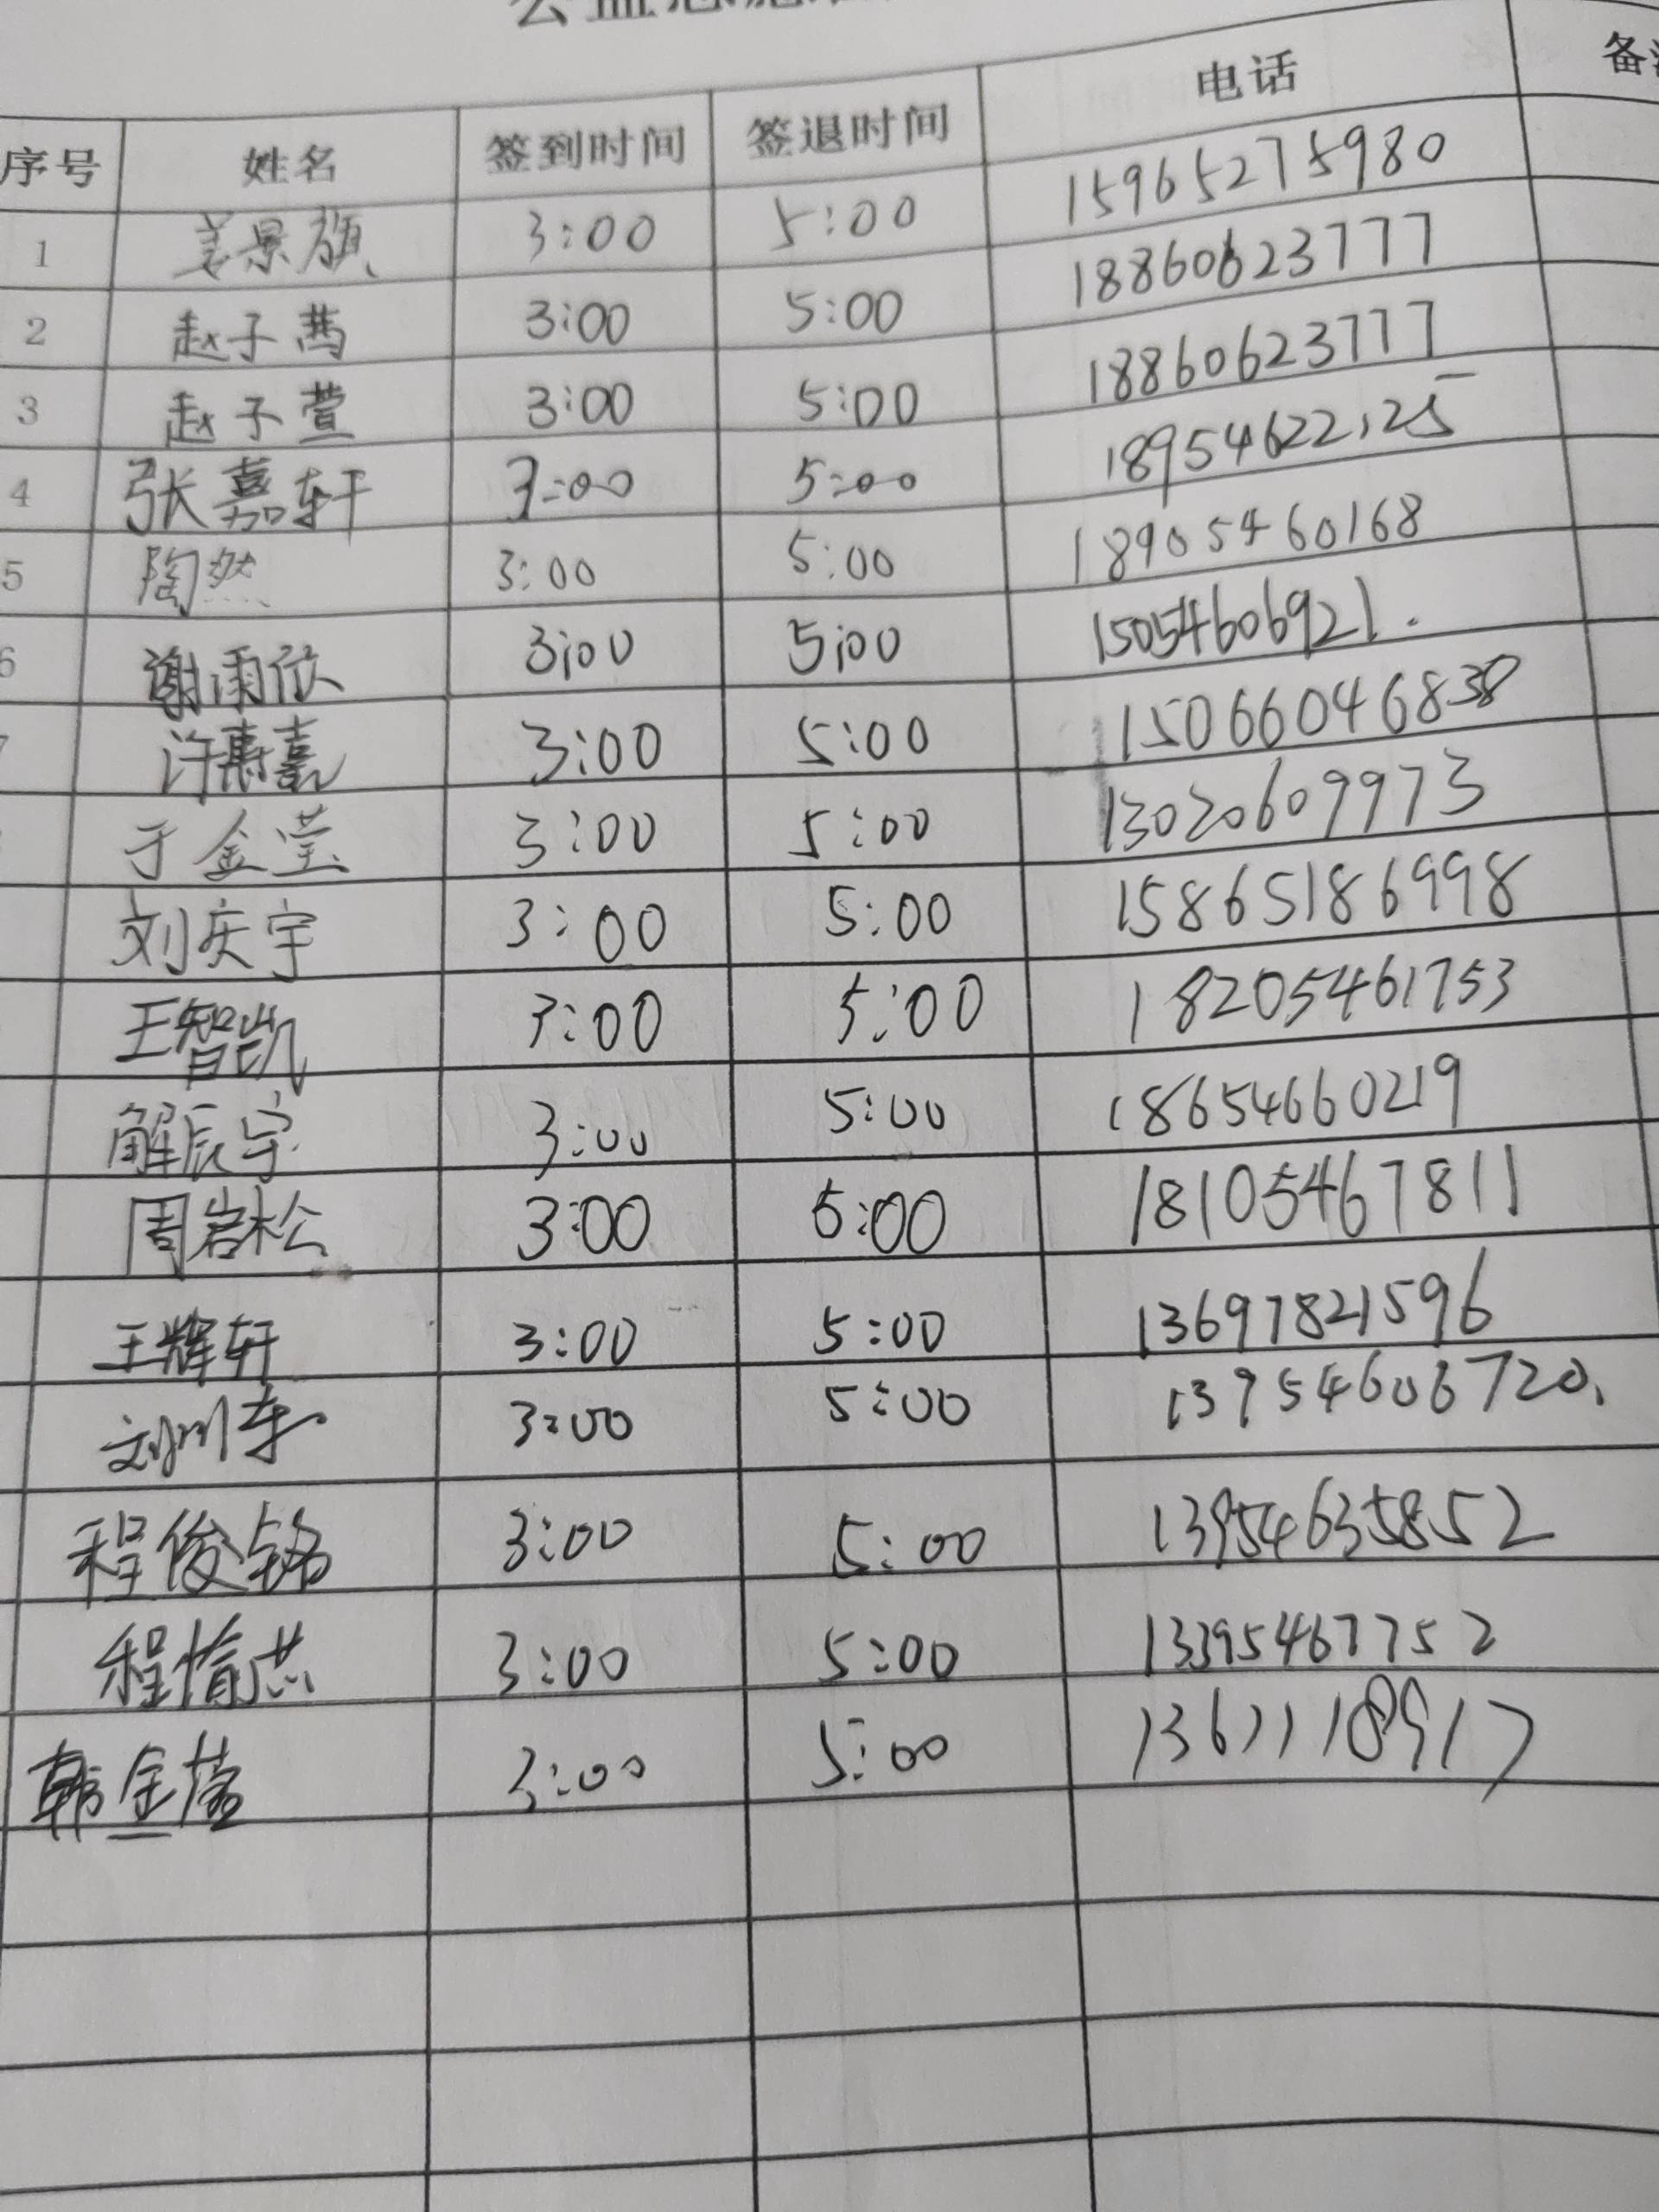 序号 姓名 签到时间 签退时间 电话 备
1 姜景旗 3:00 5:00 15965275980
2 赵子茜 3:00 5:00 18860623777
3 赵子萱 3:00 5:00 18860623777
4 张嘉轩 3:00 5:00 18954622125
5 陶然 3:00 5:00 18905460168
6 谢雨欣 3:00 5:00 15054606921.
7 许 3:00 5:00 15066046838
于金莹 3:00 5:00 13020609973
刘庆宇 3:00 5:00 15865186998
王智凯 3:00 5:00 18205461753
解辰宇 3:00 5:00 18654660219
周岩松 3:00 5:00 18105467811
王辉轩 3:00 5:00 13697821596
刘 3:00 5:00 13954606720.
程俊铭 3:00 5:00 13954635852
程惰芯 3:00 5:00 13395467752
韩金 3:00 5:00 13611118917